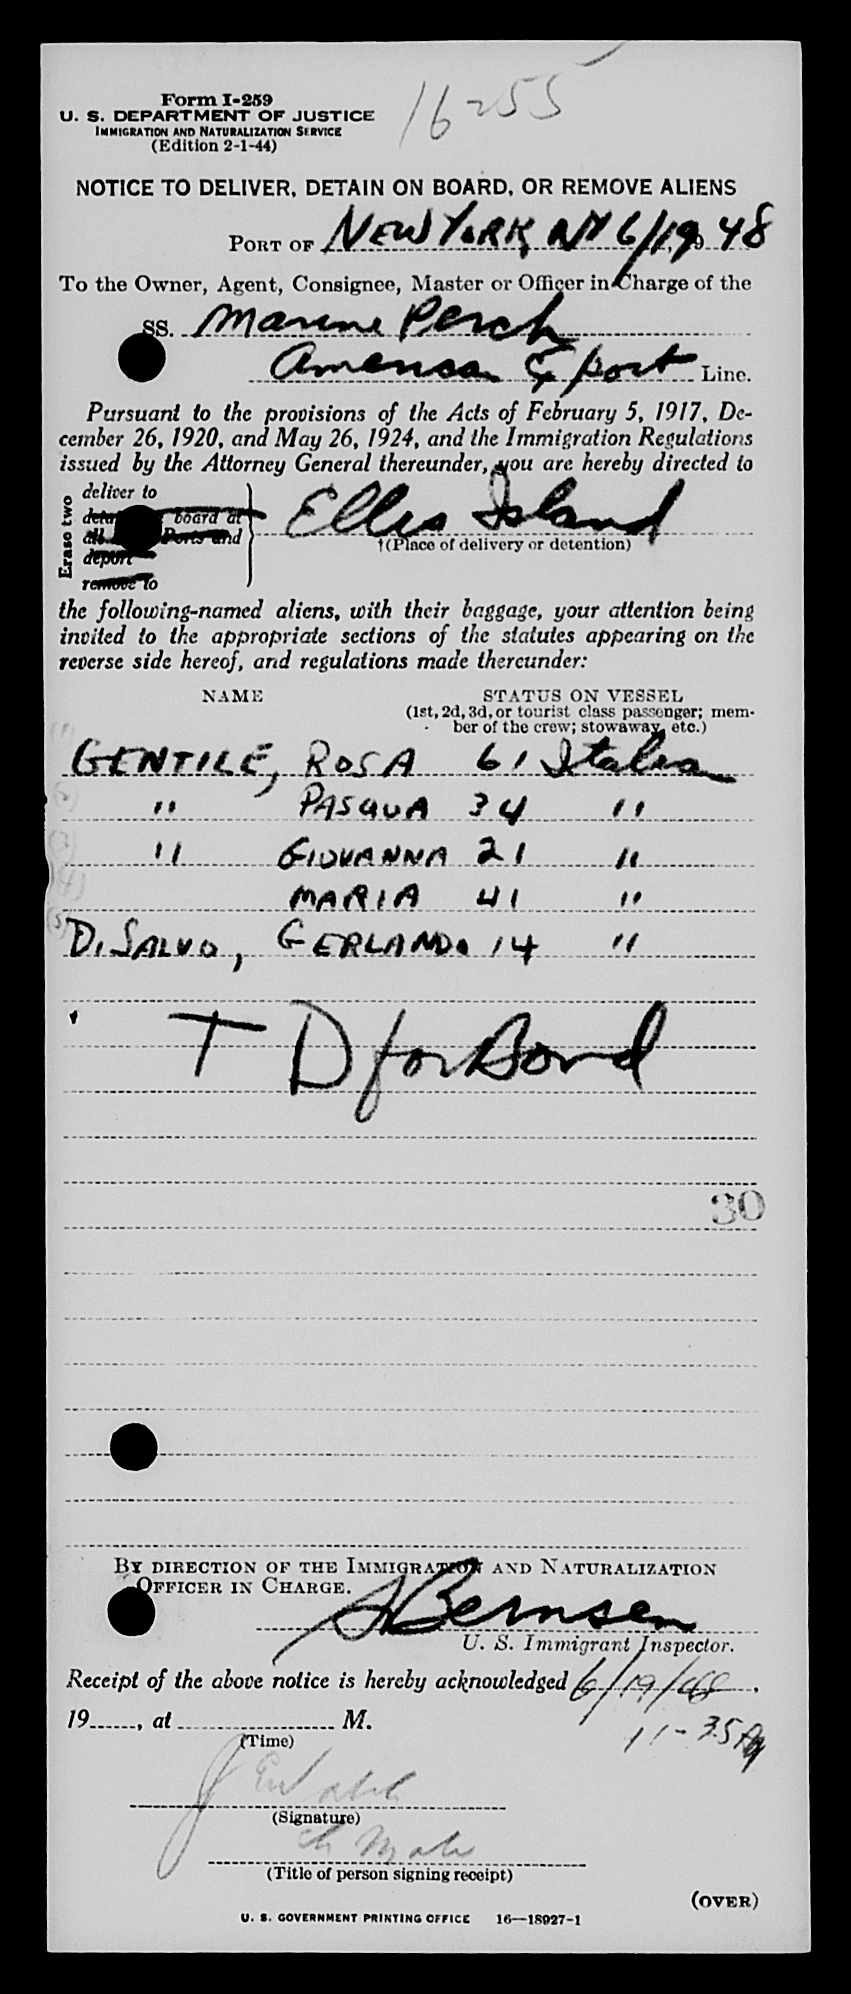 16255
Form I-259
U. S. DEPARTMENT OF JUSTICE
IMMIGRATION AND NATURALIZATION SERVICE
(Edition 2-1-44)
NOTICE TO DELIVER, DETAIN ON BOARD, OR REMOVE ALIENS
PORT OF NEW YORK, NY 6/19 48
To the Owner, Agent, Consignee, Master or Officer in Charge of the
SS. Marine Perch
American Export Line.
Pursuant to the provisions of the Acts of February 5, 1917, De-
cember 26, 1920, and May 26, 1924, and the Immigration Regulations
issued by the Attorney General thereunder, you are hereby directed to
Erase two
deliver to
board at
Ports and
deport
remove to
Ellis Island
†(Place of delivery or detention)
the following-named aliens, with their baggage, your attention being
invited to the appropriate sections of the statutes appearing on the
reverse side hereof, and regulations made thereunder:
NAME STATUS ON VESSEL
(1st, 2d, 3d, or tourist class passenger; mem-
ber of the crew; stowaway, etc.)
(1) GENTILE, ROSA 61 Italian
(2) " PASQUA 34 "
(3) " GIOVANNA 21 "
(4) MARIA 41 "
(5) DiSALVO, GERLANDO 14 "
T D for Bond
30
BY DIRECTION OF THE IMMIGRATION AND NATURALIZATION
OFFICER IN CHARGE.
Bernsen
U. S. Immigrant Inspector.
Receipt of the above notice is hereby acknowledged 6/19/48,
19......, at M.
11-35 AM
(Time)
(Signature)
Ch Mate
(Title of person signing receipt)
(OVER)
U. S. GOVERNMENT PRINTING OFFICE 16—18927-1